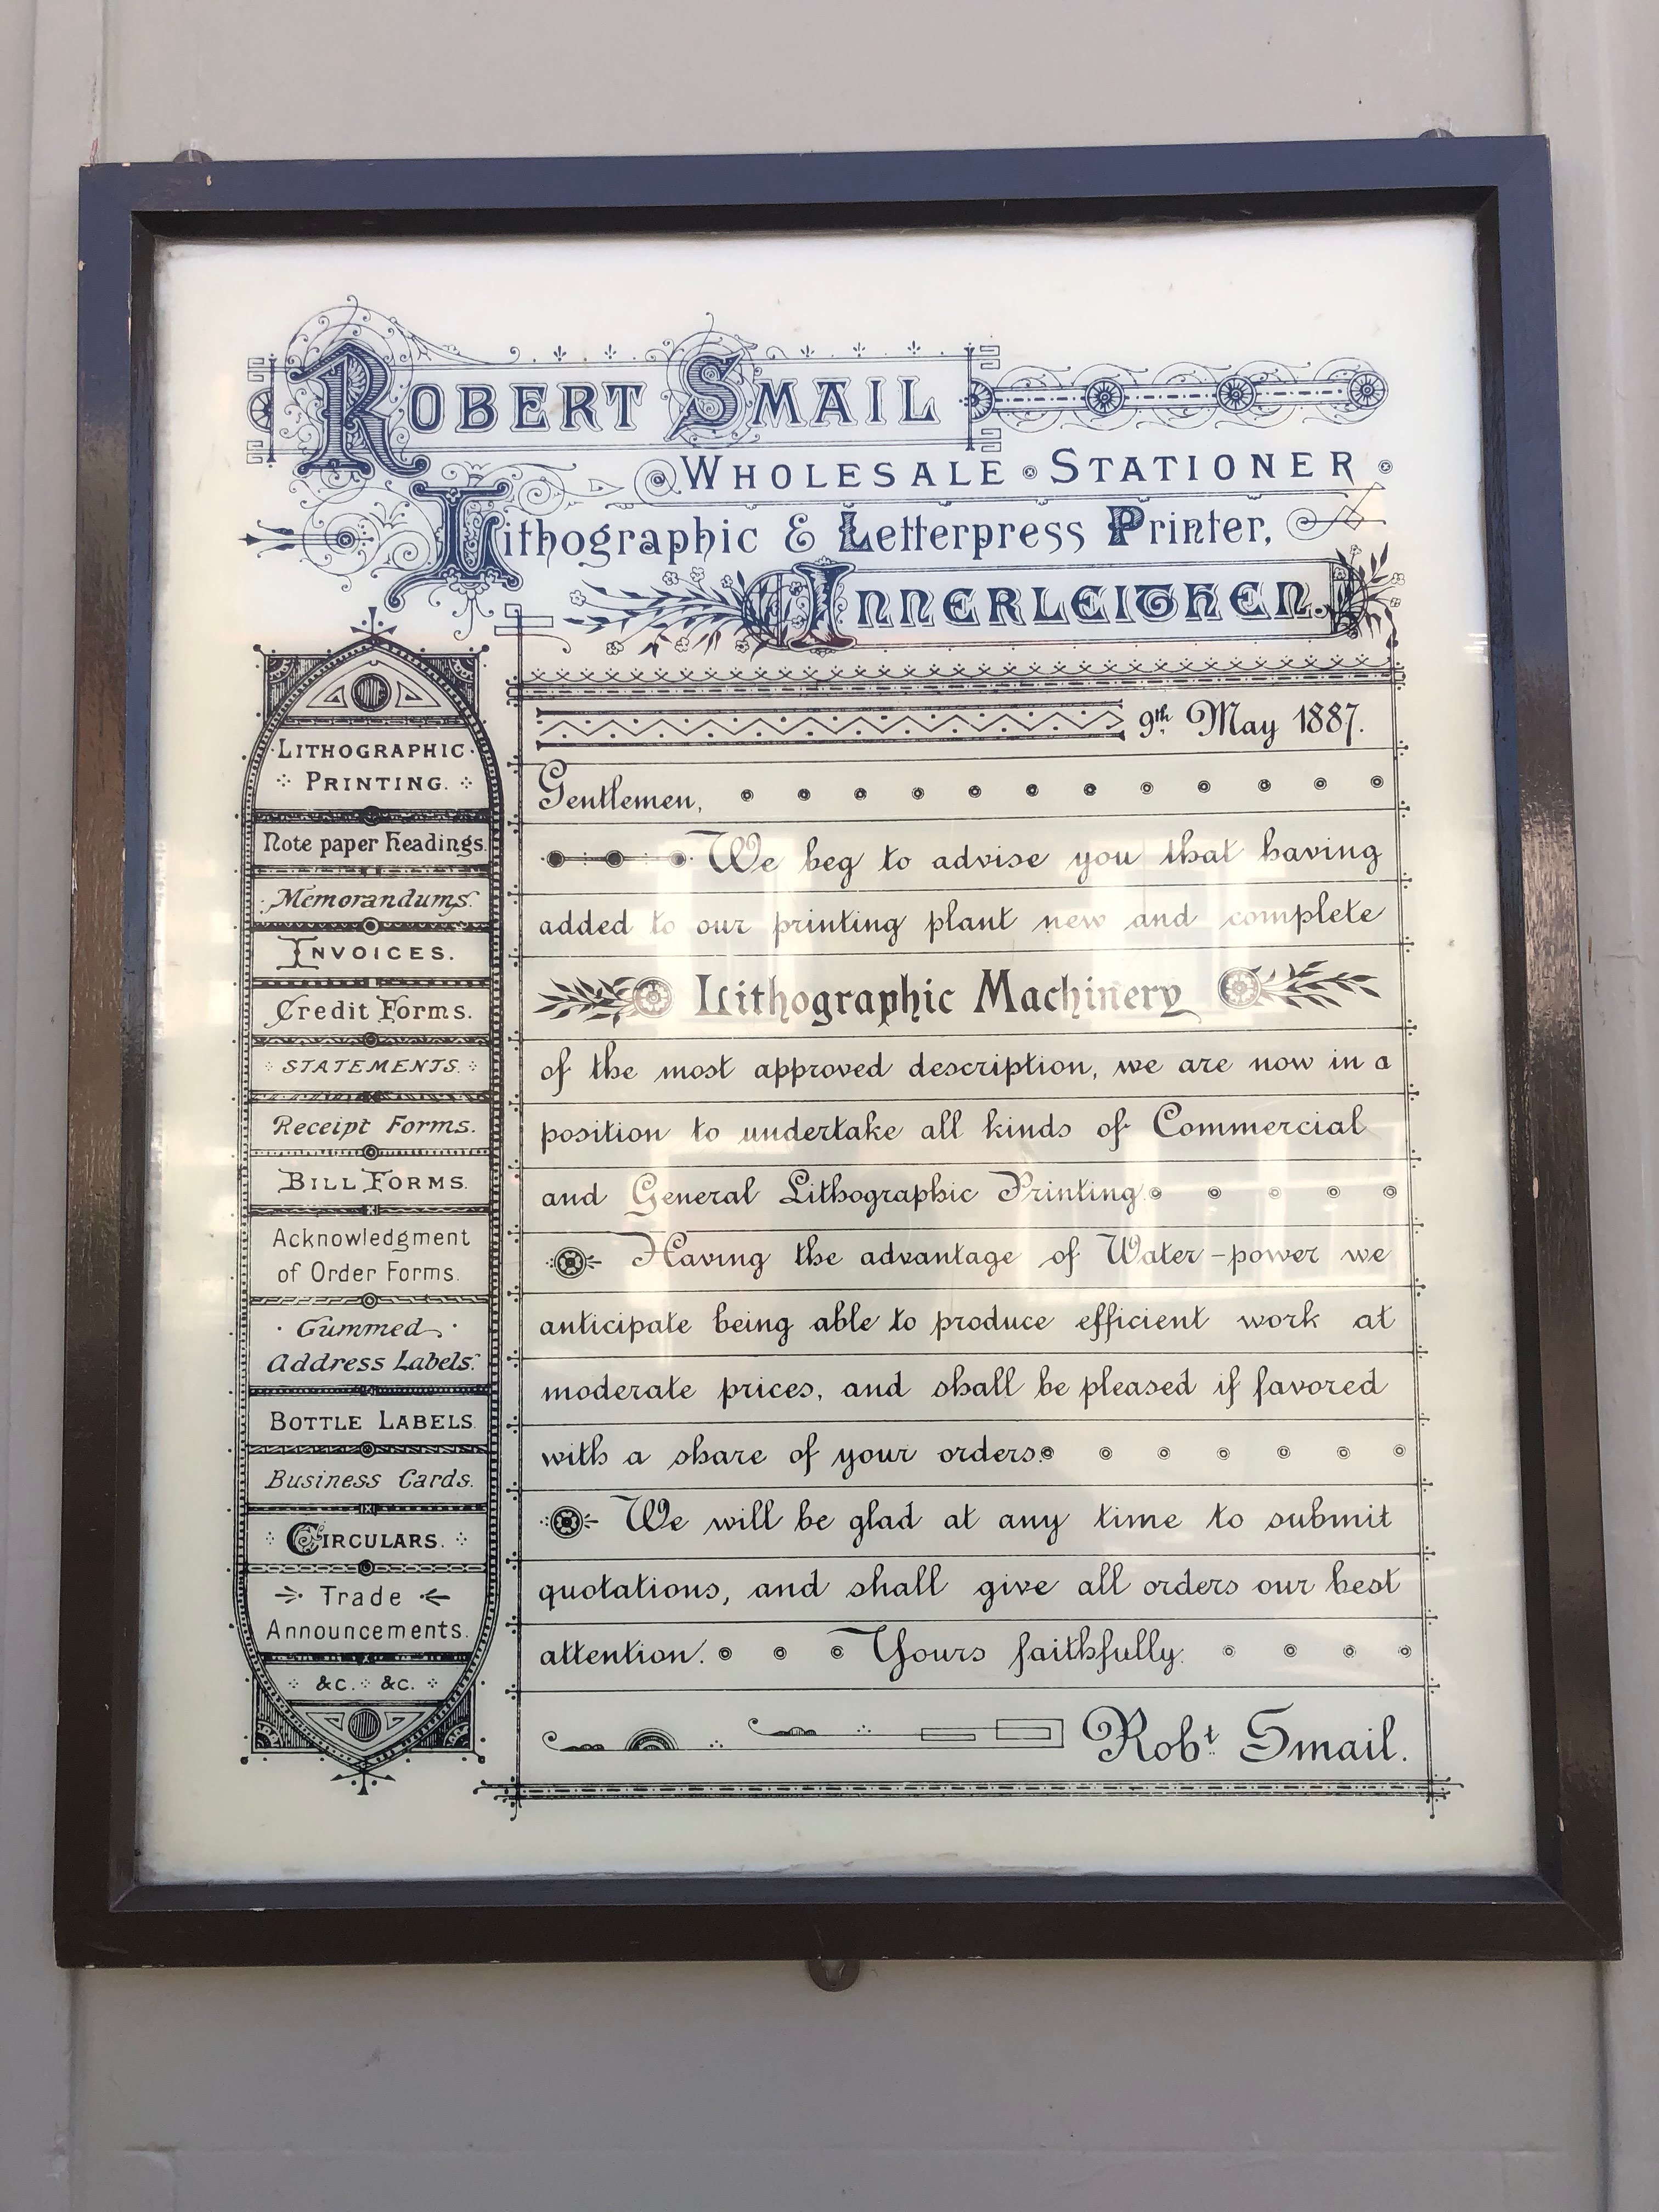 ROBERT SMAIL
WHOLESALE STATIONER
Lithographic & Letterpress Printer,
INNERLEITHEN.
LITHOGRAPHIC
PRINTING.
Note paper Headings.
Memorandums.
INVOICES.
Credit Forms.
STATEMENTS.
Receipt Forms.
BILL FORMS.
Acknowledgment
of Order Forms.
Gummed
Address Labels.
BOTTLE LABELS.
Business Cards.
CIRCULARS.
Trade
Announcements.
&C. &C.
9th. May 1887.
Gentlemen,
We beg to advise you that having
added to our printing plant new and complete
Lithographic Machinery
of the most approved description, we are now in a
position to undertake all kinds of Commercial
and General Lithographic Printing.
Having the advantage of Water-power we
anticipate being able to produce efficient work at
moderate prices, and shall be pleased if favored
with a share of your orders.
We will be glad at any time to submit
quotations, and shall give all orders our best
attention. Yours faithfully.
Robt. Smail.